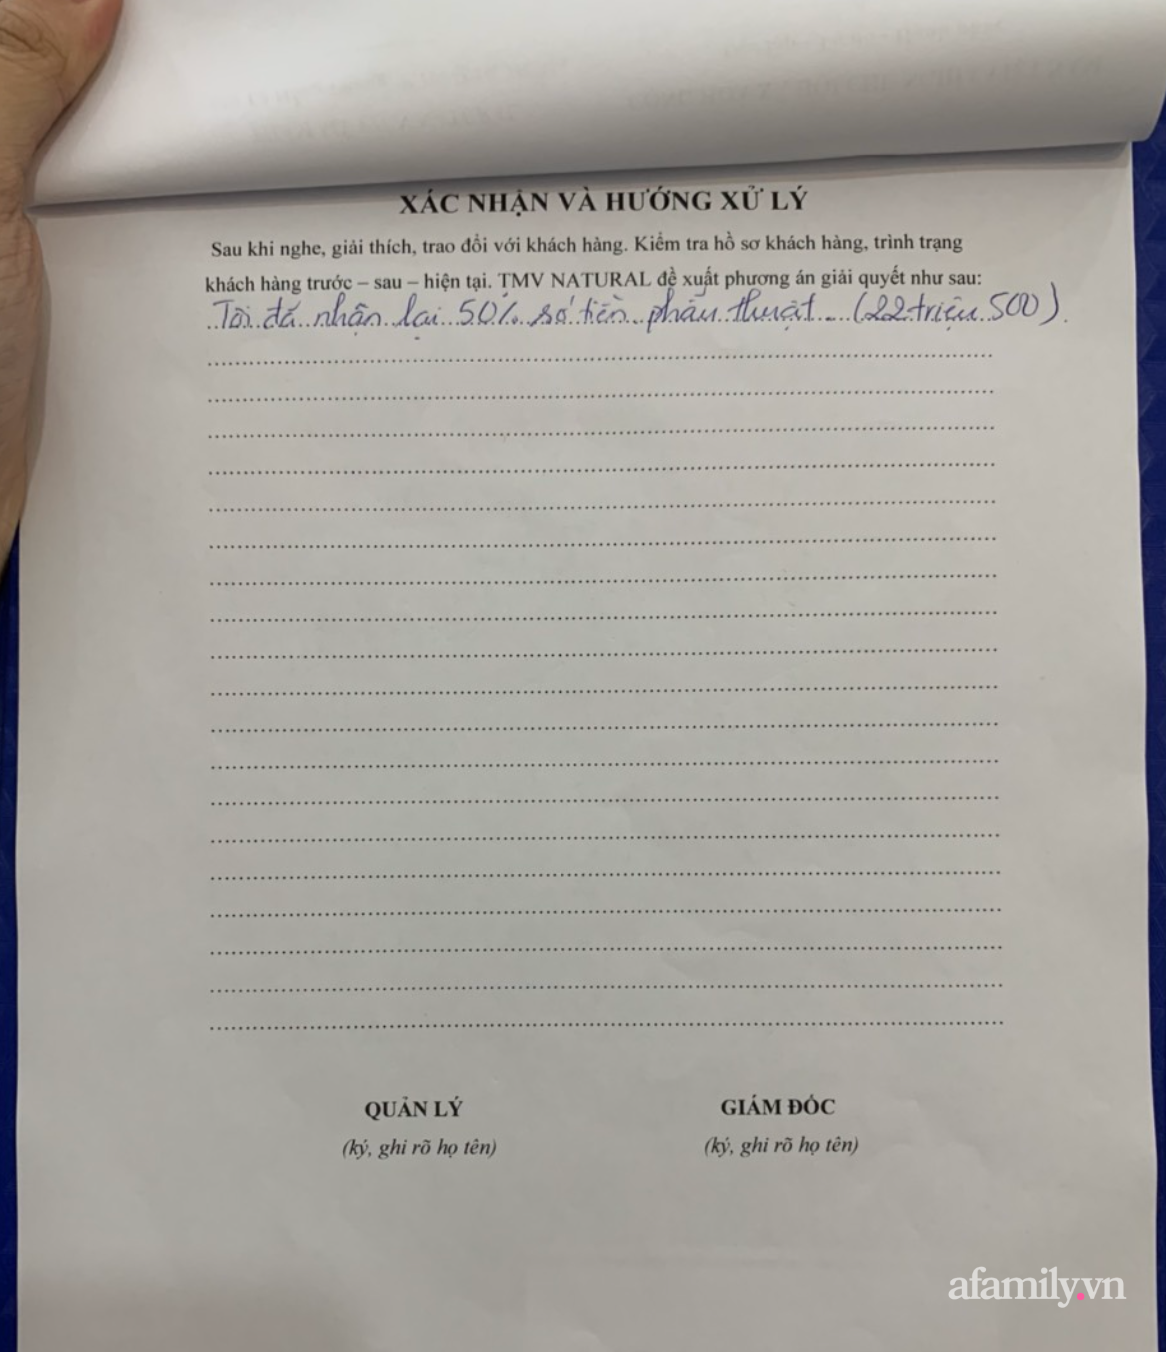 XÁC NHẬN VÀ HƯỚNG XỬ LÝ
Sau khi nghe, giải thích, trao đổi với khách hàng. Kiểm tra hồ sơ khách hàng, trình trạng
khách hàng trước – sau – hiện tại. TMV NATURAL đề xuất phương án giải quyết như sau:
Tôi đã nhận lại 50% số tiền phẫu thuật (22 triệu 500).
QUẢN LÝ
GIÁM ĐỐC
(ký, ghi rõ họ tên)
(ký, ghi rõ họ tên)
afamily.vn